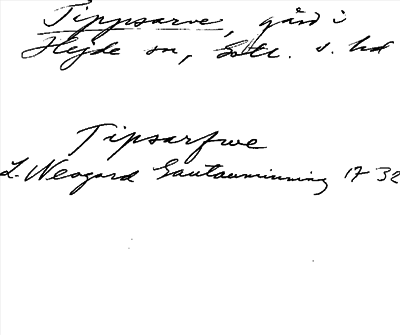 Tippsarve, gård i
Hejde sn, Gotl. s. hd
Tipsarfwe
L. Neogard Gautauminning 1732